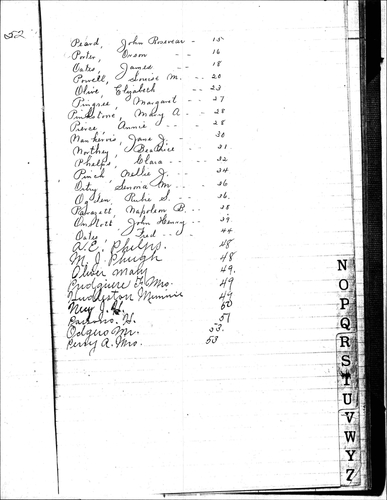 52
Peard, John Rosevear - 15
Porter, Orson - - 16
Oates, James - - 18
Powell, Louise M. - - 20
Olive, Elizabeth - - 23
Pingree, Margaret - 27
Pinkstone, Mary A. - - 28
Pierce, Annie - - 28
Nankervis, Jane J. - 30
Northey, Beatrice - 31
Phelps, Clara - - 32
Pinch, Nellie J. - - 34
Oatey, M - - 36
Ogden, Rubie S. - - 36.
Napoleon B. - - 38
John Henry - - 39
Oates, Fred - - 44
A. E. Phelps. 48
M. J. Plough 48
Oliver Mary 49.
Mrs. 49
Minnie 49
J. H. 50
Parsons. H. 51
Odgers Mr. 53.
Perry A. Mrs. 53
N
O
P
Q
R
S
T
U
V
W
Y
Z